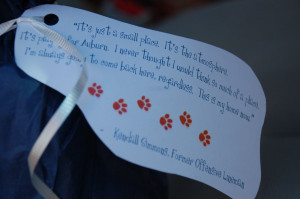 "It's just a small place. It's the atmosphere.
It's playing for Auburn. I never thought I would think so much of a place.
I'm always going to come back here, regardless. This is my home now."
Kendall Simmons, Former Offensive Lineman